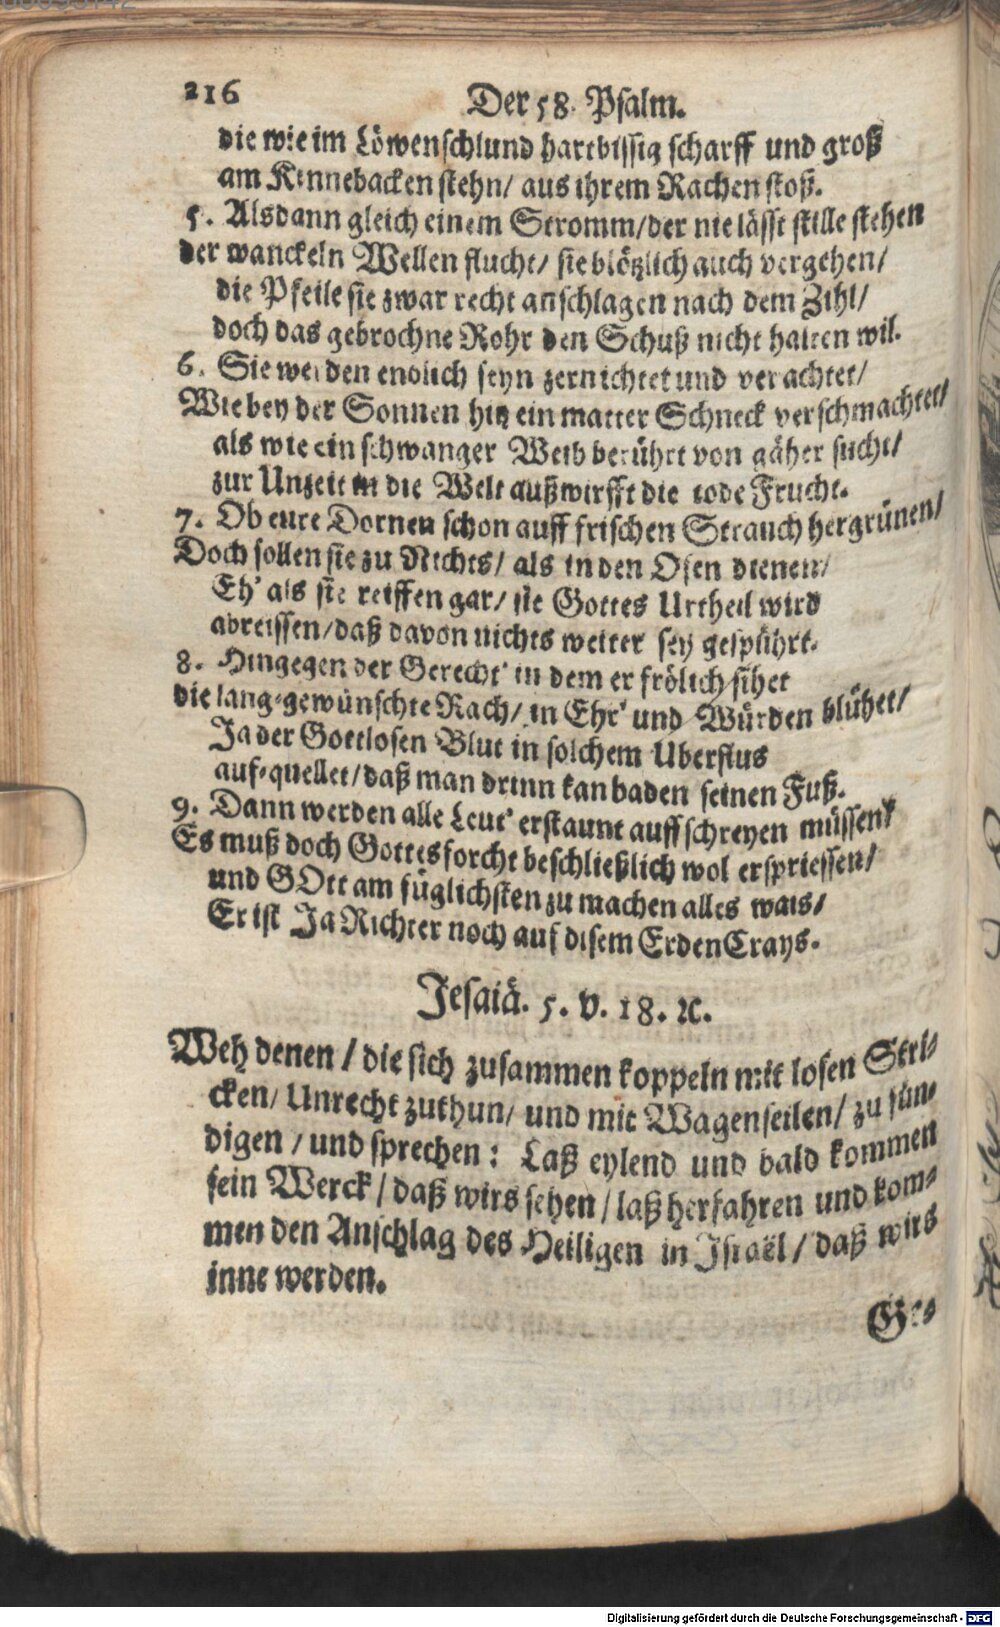 216
Der 58. Psalm.
die wie im Löwenschlund hartbissig scharff und groß
am Kinnebacken stehn/ aus ihrem Rachen stoß.
5. Alsdann gleich einem Stromm/der nie lässt stille stehen
der wanckeln Wellen flucht/ sie blötzlich auch vergehen/
die Pfeile sie zwar recht anschlagen nach dem Zihl/
doch das gebrochne Rohr den Schuß nicht halten wil.
6. Sie werden endlich seyn zernichtet und verachtet/
Wie bey der Sonnen hitz ein matter Schneck verschmachtet/
als wie ein schwanger Weib berührt von gäher sucht/
zur Unzeit in die Welt außwirfft die tode Frucht.
7. Ob eure Dornen schon auff frischen Strauch hergrünen/
Doch sollen sie zu Nichts/ als in den Ofen dienen/
Eh' als sie reiffen gar/ sie Gottes Urtheil wird
abreissen/daß davon nichts weiter sey gespührt.
8. Hingegen der Gerecht' in dem er frölich sihet
die lang-gewünschte Rach/ in Ehr' und Würden blühet/
Ja der Gottlosen Blut in solchem Uberflus
auf-quellet/daß man drinn kan baden seinen Fuß.
9. Dann werden alle Leut' erstaunt auff schreyen müssen/
Es muß doch Gottesforcht beschließlich wol erspriessen/
und GOtt am füglichsten zu machen alles wais/
Er ist Ja Richter noch auf disem ErdenCrays.
Jesaiä. 5. v. 18. ꝛc.
Weh denen / die sich zusammen koppeln mit losen Stri-
cken/ Unrecht zuthun/ und mit Wagenseilen/ zu sün-
digen / und sprechen: Laß eylend und bald kommen
sein Werck / daß wirs sehen / laß herfahren und kom-
men den Anschlag des Heiligen in Israël / daß wirs
inne werden.
Ges
Digitalisierung gefördert durch die Deutsche Forschungsgemeinschaft - DFG